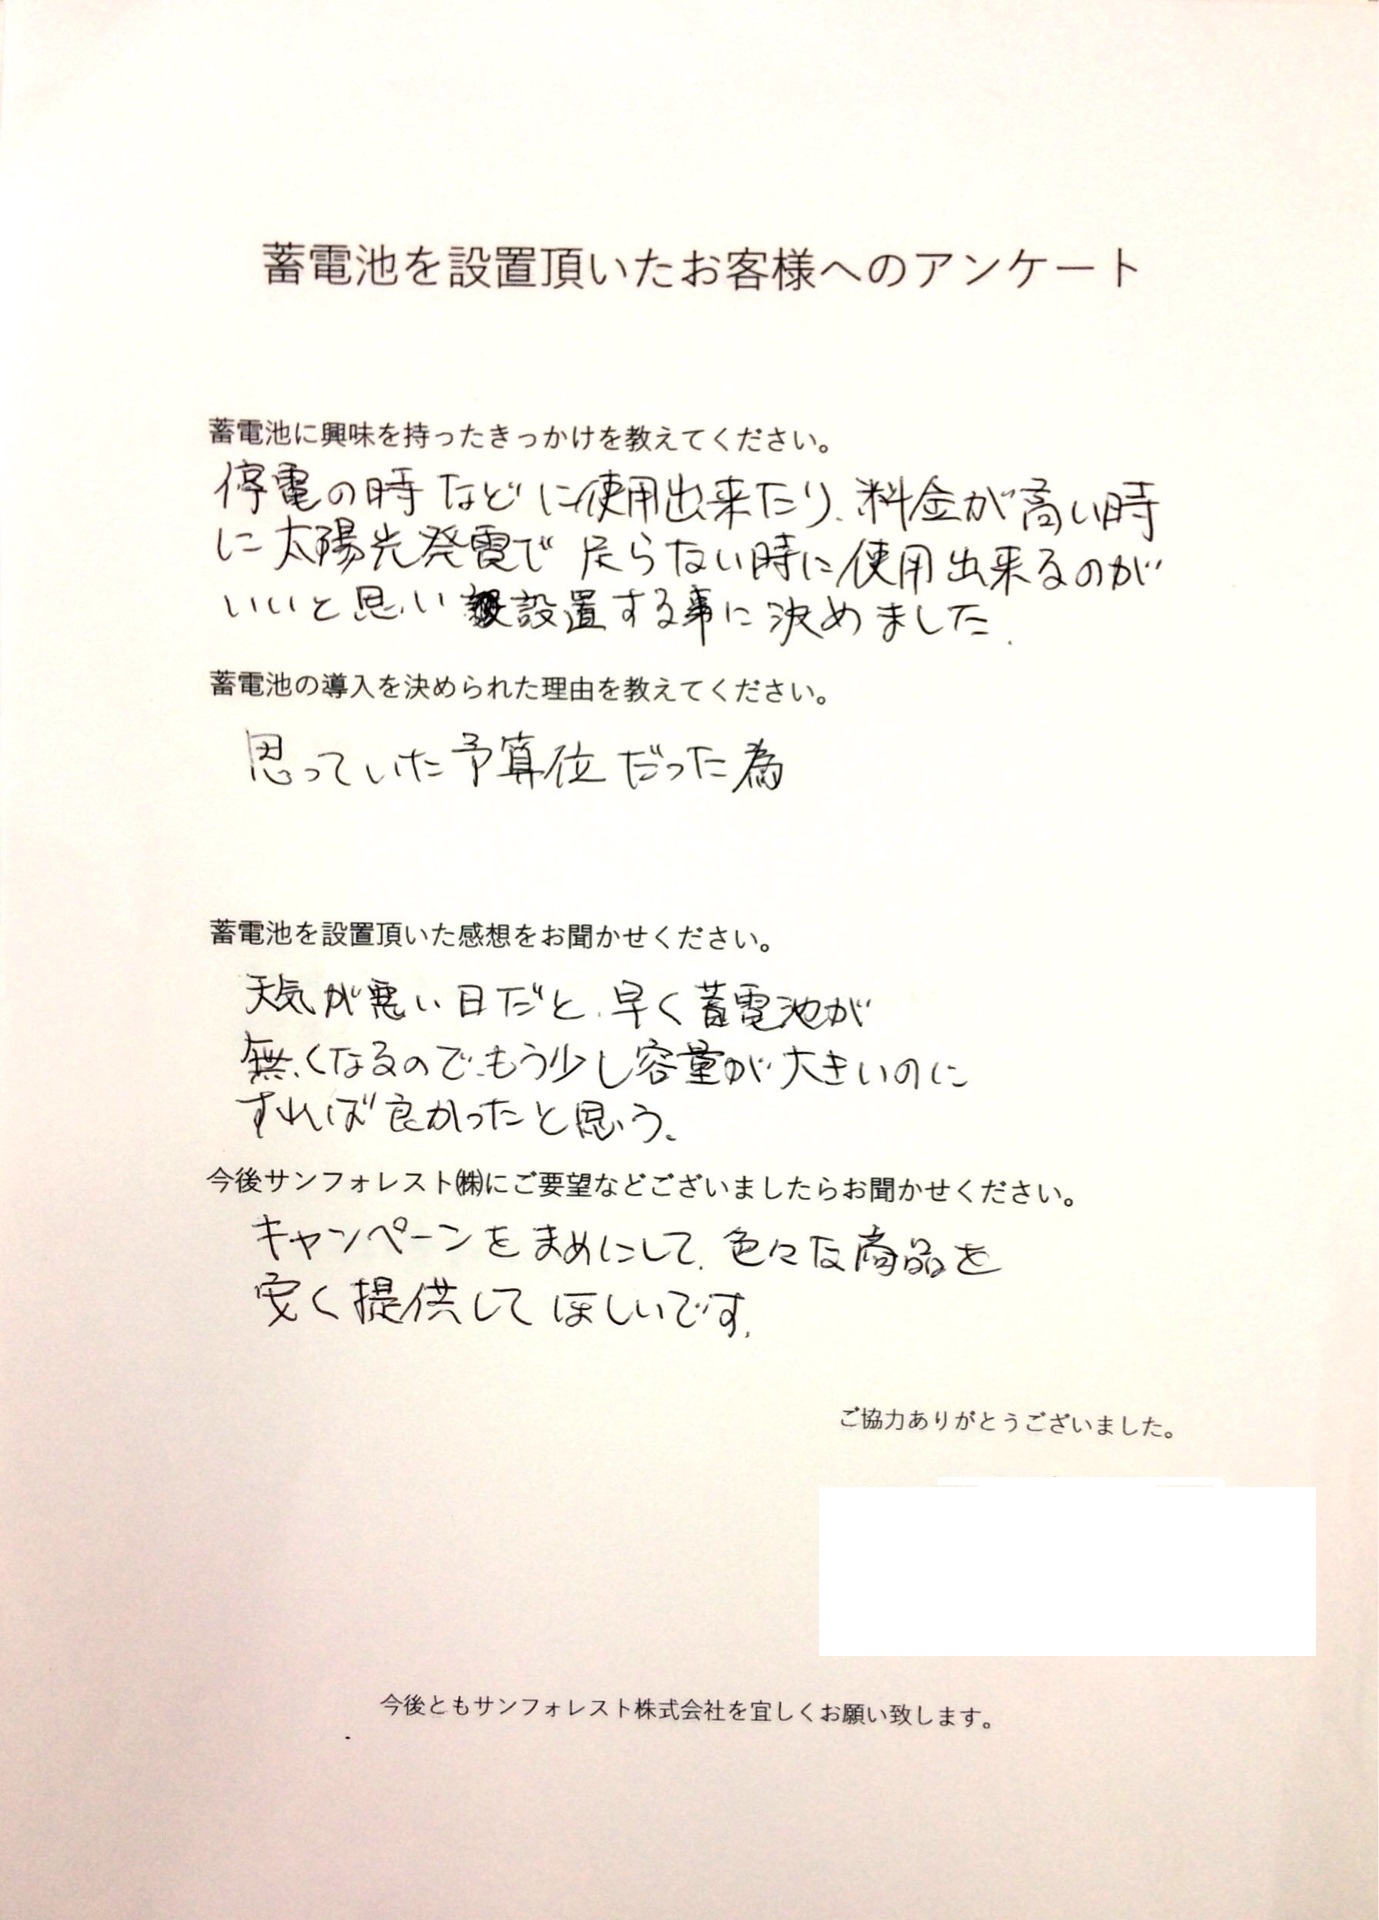 蓄電池を設置頂いたお客様へのアンケート
蓄電池に興味を持ったきっかけを教えてください。
停電の時などに使用出来たり、料金が高い時
に太陽光発電で足らない時に使用出来るのが
いいと思い設置する事に決めました.
蓄電池の導入を決められた理由を教えてください。
思っていた予算位だった為
蓄電池を設置頂いた感想をお聞かせください。
天気が悪い日だと、早く蓄電池が
無くなるので、もう少し容量が大きいのに
すれば良かったと思う。
今後サンフォレスト㈱にご要望などございましたらお聞かせください。
キャンペーンをまめにして、色々な商品を
安く提供してほしいです.
ご協力ありがとうございました。
今後ともサンフォレスト株式会社を宜しくお願い致します。